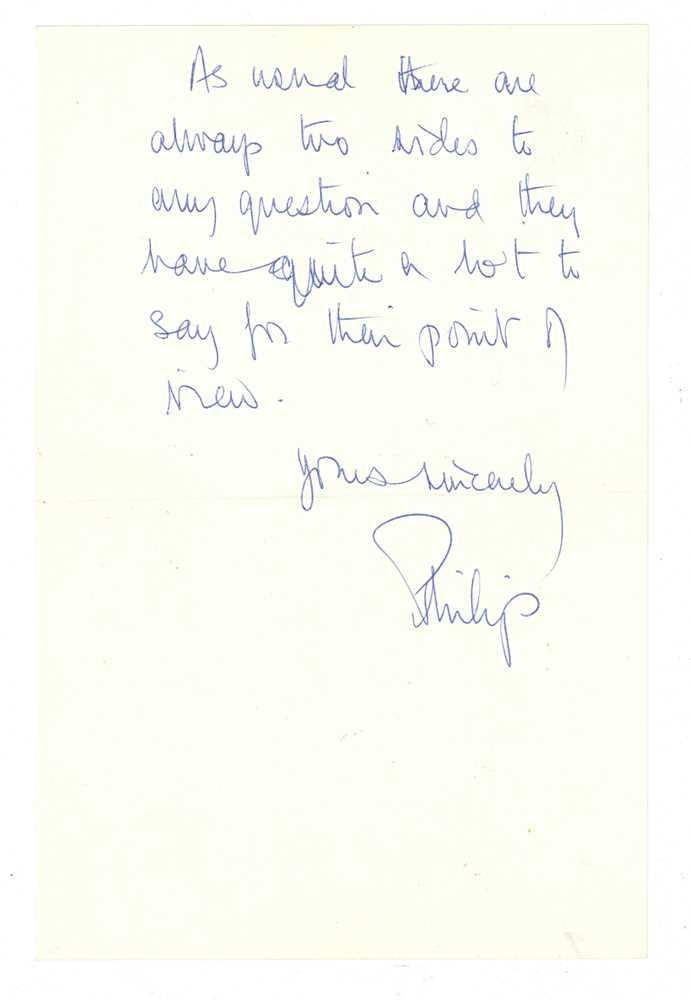 As usual there are
always two sides to
any question and they
have quite a lot to
say for their point of
view.
Yours sincerely
Philip